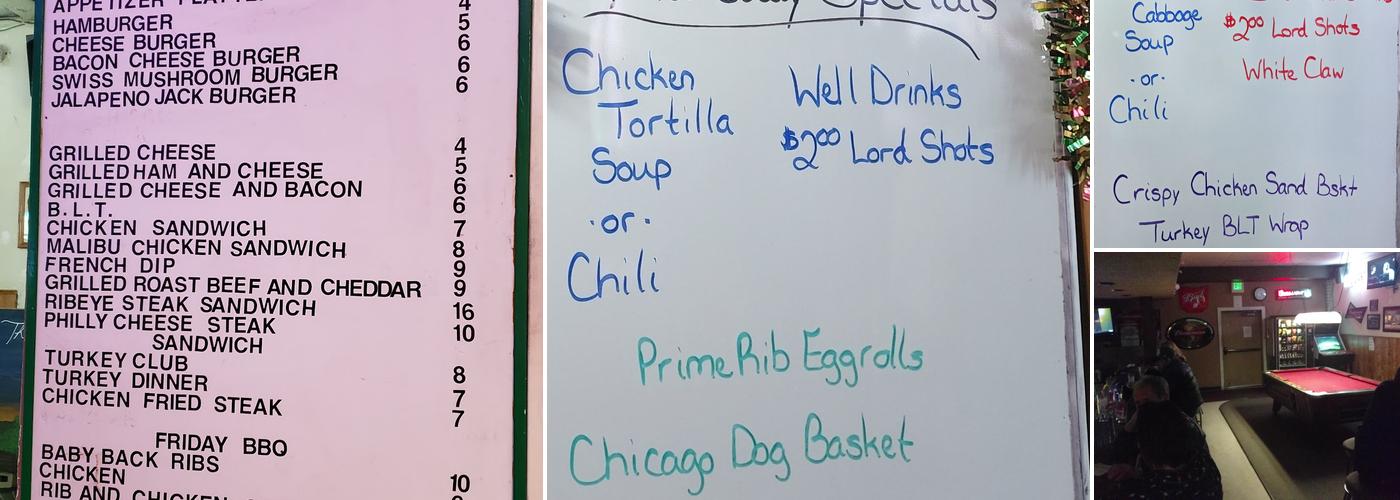 APPETIZER PLATTER 4
HAMBURGER 5
CHEESE BURGER 6
BACON CHEESE BURGER 6
SWISS MUSHROOM BURGER 6
JALAPENO JACK BURGER
GRILLED CHEESE 4
GRILLED HAM AND CHEESE 5
GRILLED CHEESE AND BACON 6
B.L.T. 6
CHICKEN SANDWICH 7
MALIBU CHICKEN SANDWICH 8
FRENCH DIP 9
GRILLED ROAST BEEF AND CHEDDAR 9
RIBEYE STEAK SANDWICH 16
PHILLY CHEESE STEAK 10
SANDWICH
TURKEY CLUB 8
TURKEY DINNER 7
CHICKEN FRIED STEAK 7
FRIDAY BBQ
BABY BACK RIBS 10
CHICKEN
RIB AND CHICKEN
Specials
Chicken
Tortilla
Soup
·or·
Chili
Well Drinks
$2.00 Lord Shots
Prime Rib Eggrolls
Chicago Dog Basket
Cabbage
Soup
·or·
Chili
$2.00 Lord Shots
White Claw
Crispy Chicken Sand Bskt
Turkey BLT Wrap